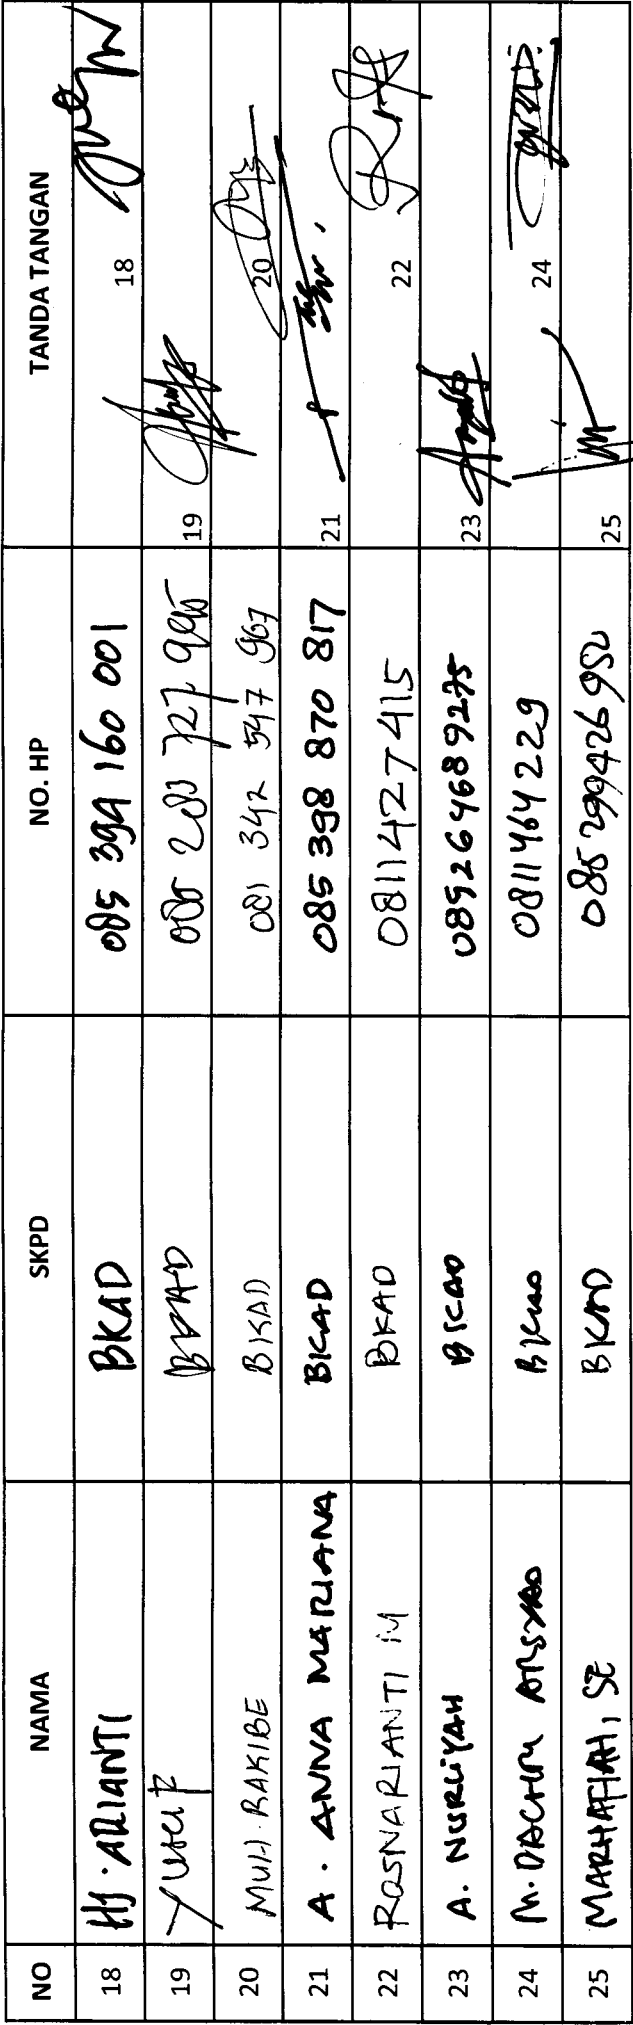 NO NAMA SKPD NO. HP TANDA TANGAN
18 HJ. ARIANTI BKAD 085 394 160 001 18
19 YUSUF BKAD 19
20 MUH. RAKIBE BKAD 081 342 547 967 20
21 A. ANNA MARIANA BKAD 085 398 870 817 21
22 ROSNARIANTI M BKAD 0811427415 22
23 A. NURLIYAH BKAD 23
24 M. DACHRI ARSYAD BKAD 0811464229 24
25 MARHAFIAH, SE BKAD 25